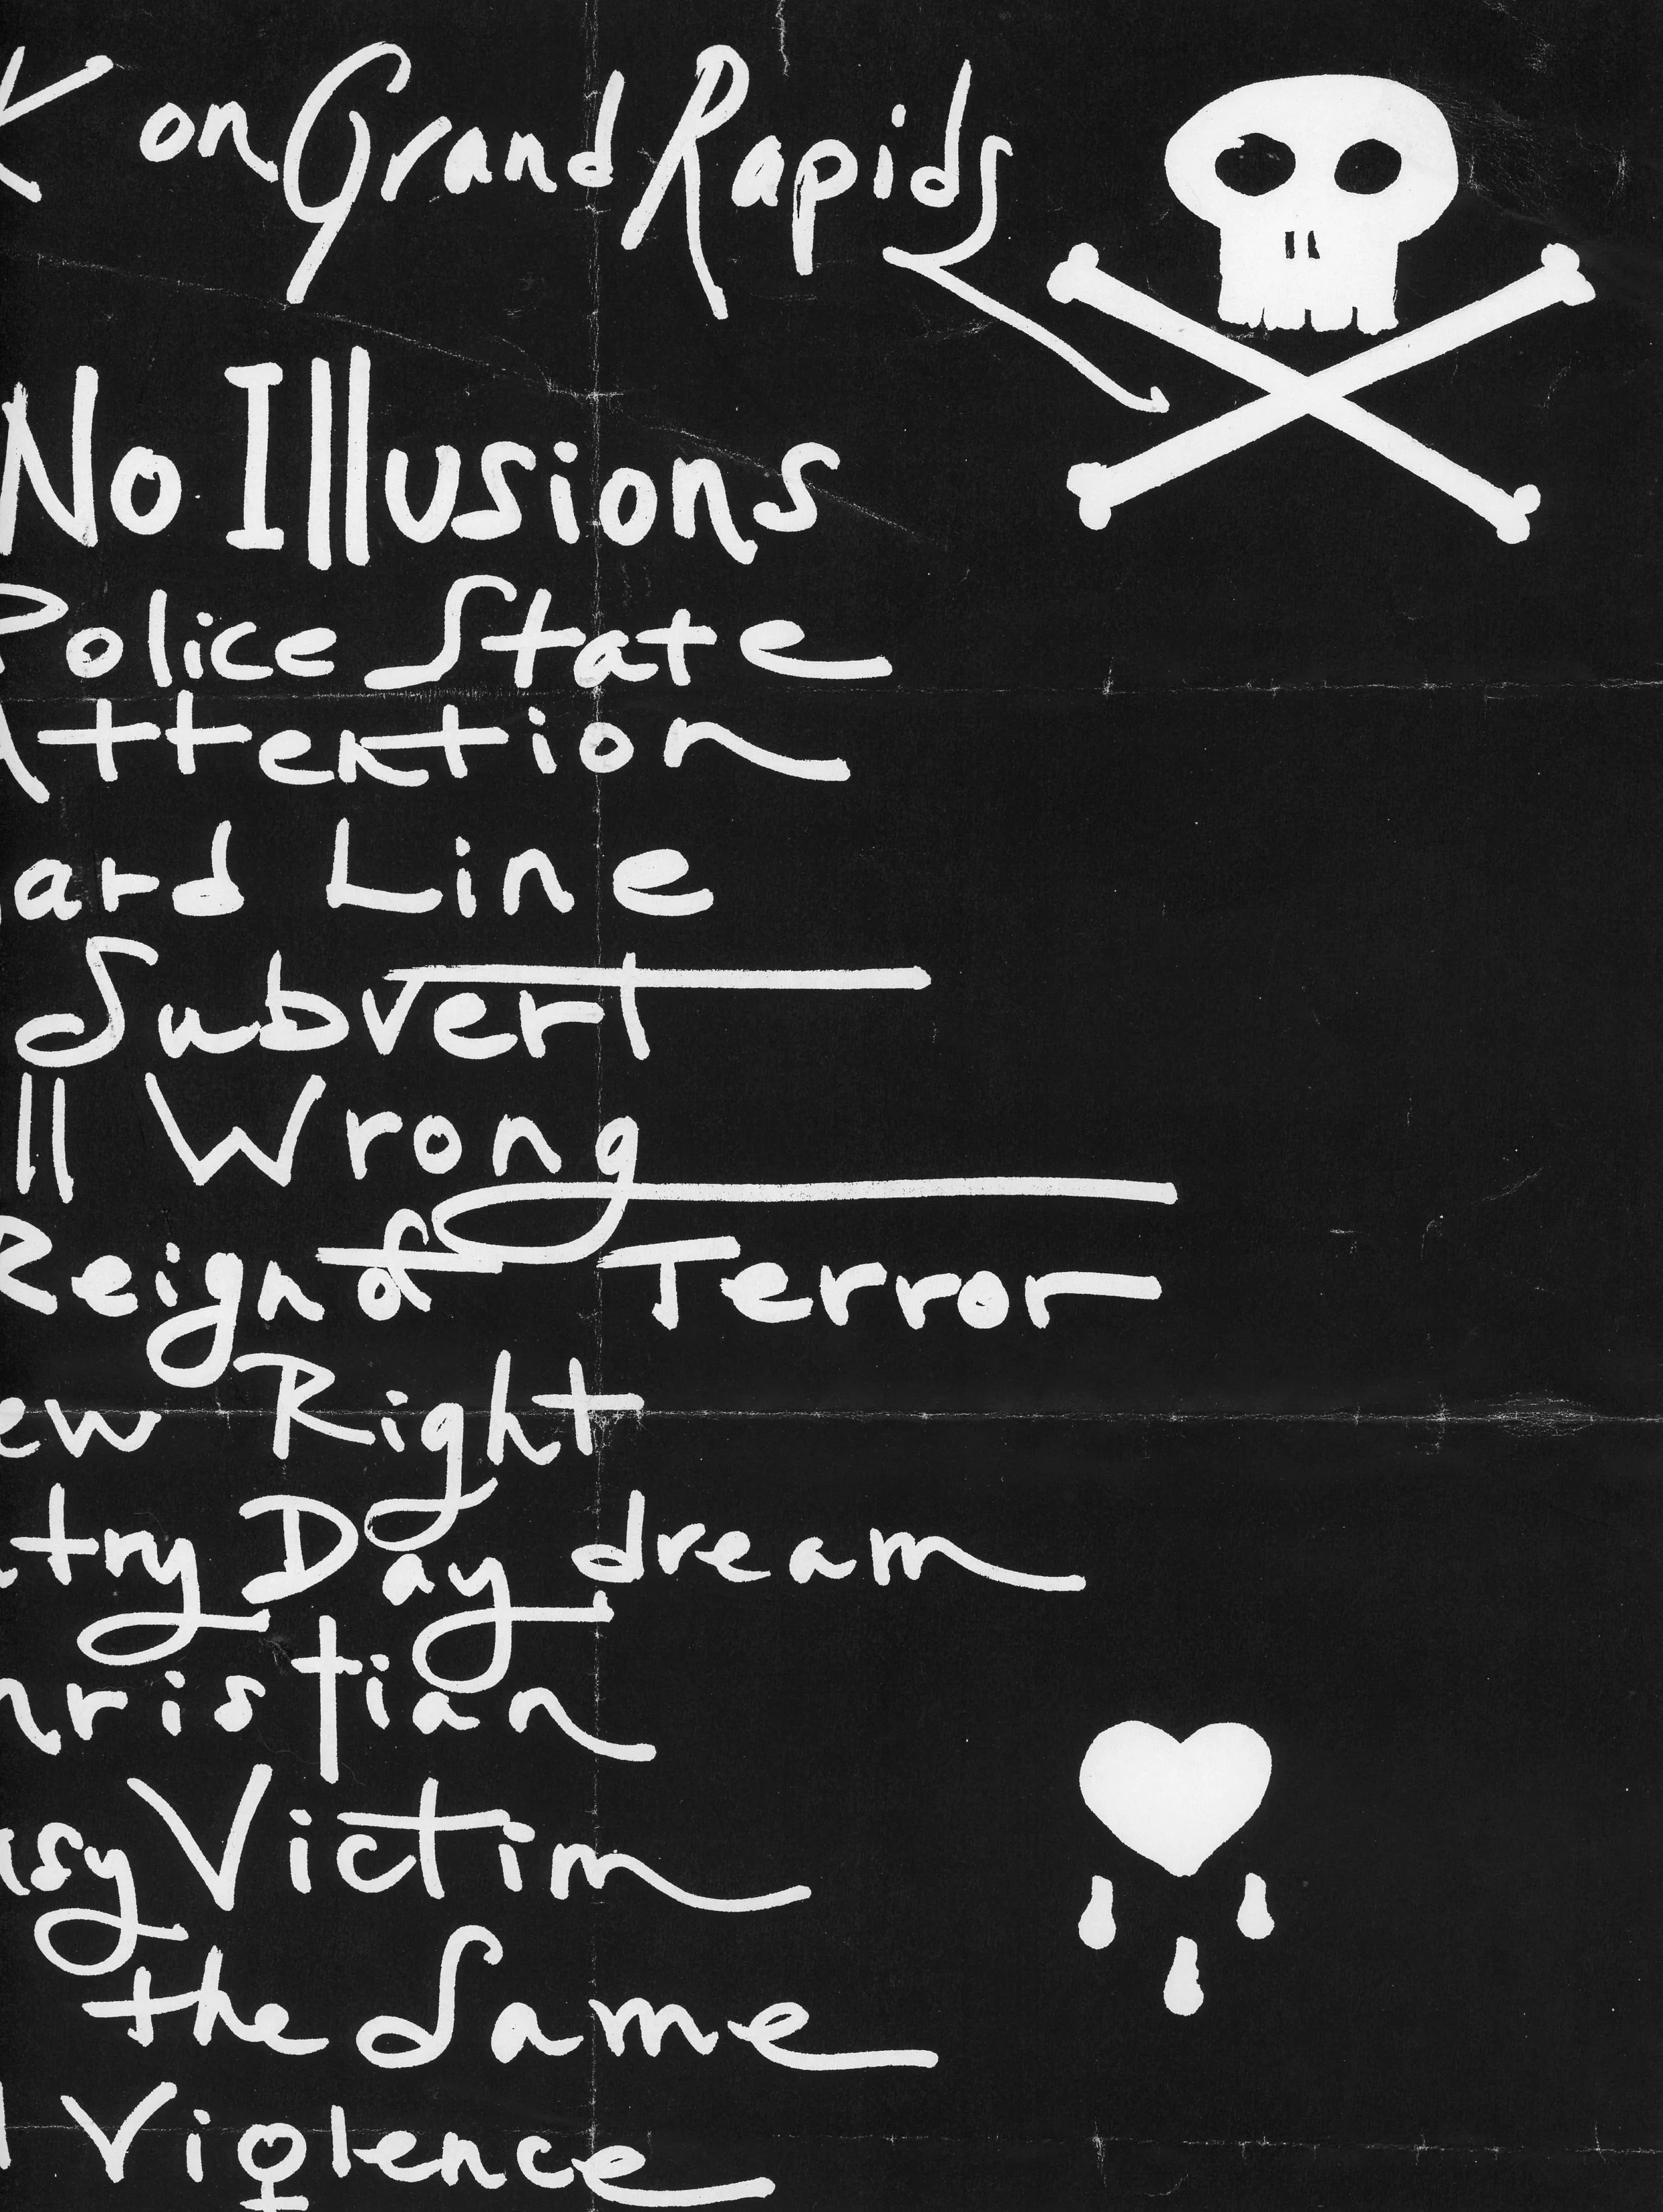 K on Grand Rapids
No Illusions
Police State
Attention
ard Line
Subvert
ll Wrong
Reign of Terror
ew Right
try Day dream
hristian
asy Victim
the Same
Violence